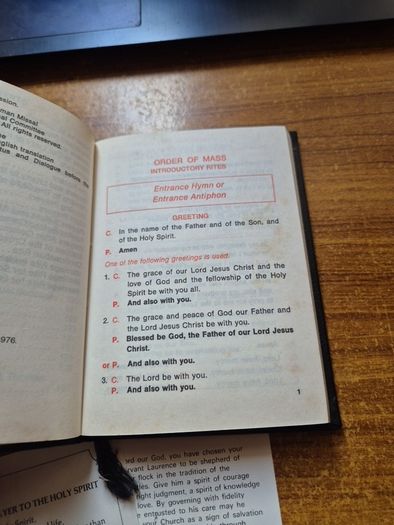 ssion.
man Missal
al Committee
All rights reserved.
he
nglish translation
tus and Dialogue before the
976.
ORDER OF MASS
INTRODUCTORY RITES
Entrance Hymn or
Entrance Antiphon
GREETING
C. In the name of the Father and of the Son, and
of the Holy Spirit.
P. Amen
One of the following greetings is used:
1. C. The grace of our Lord Jesus Christ and the
love of God and the fellowship of the Holy
Spirit be with you all.
P. And also with you.
2. C. The grace and peace of God our Father and
the Lord Jesus Christ be with you.
P. Blessed be God, the Father of our Lord Jesus
Christ.
or P. And also with you.
3. C. The Lord be with you.
P. And also with you.
1
YER TO THE HOLY SPIRIT
Spirit,
life,
than
ord our God, you have chosen your
rvant Laurence to be shepherd of
flock in the tradition of the
les. Give him a spirit of courage
ight judgment, a spirit of knowledge
love. By governing with fidelity
e entrusted to his care may he
your Church as a sign of salvation
through